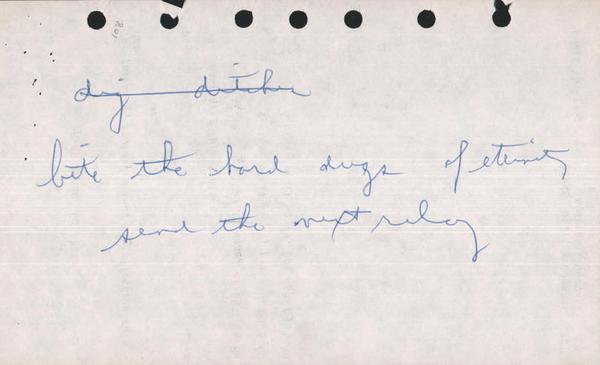 dig ditches
bite the hard dugs of eternity
send the next relay